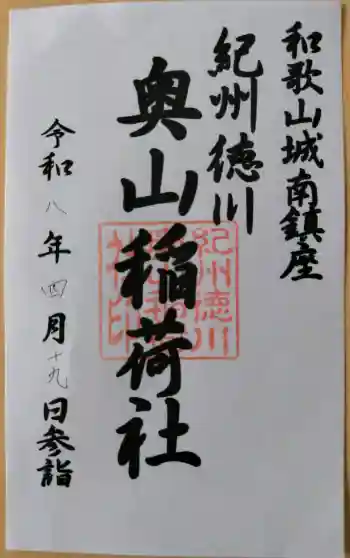 和歌山城南鎮座
紀州徳川
奥山稲荷社
令和八年四月十九日参詣
紀州徳川